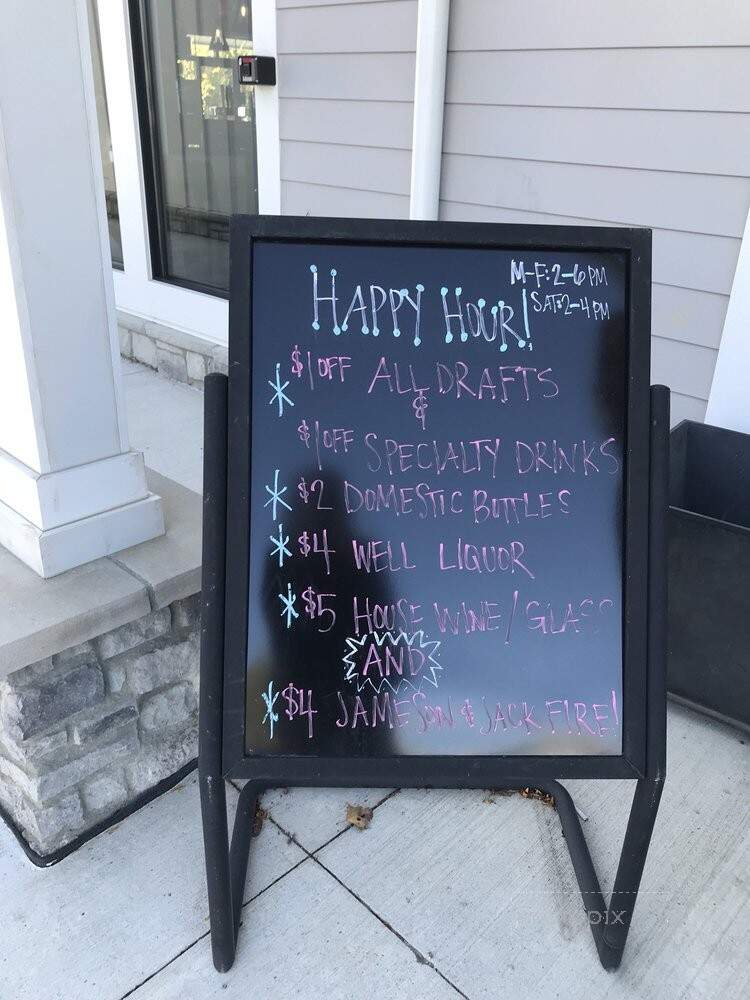 HAPPY HOUR!
M-F: 2-6 PM
SAT: 2-4 PM
* $1 OFF ALL DRAFTS
&
$1 OFF SPECIALTY DRINKS
* $2 DOMESTIC BOTTLES
* $4 WELL LIQUOR
* $5 HOUSE WINE / GLASS
AND
* $4 JAMESON & JACK FIRE!